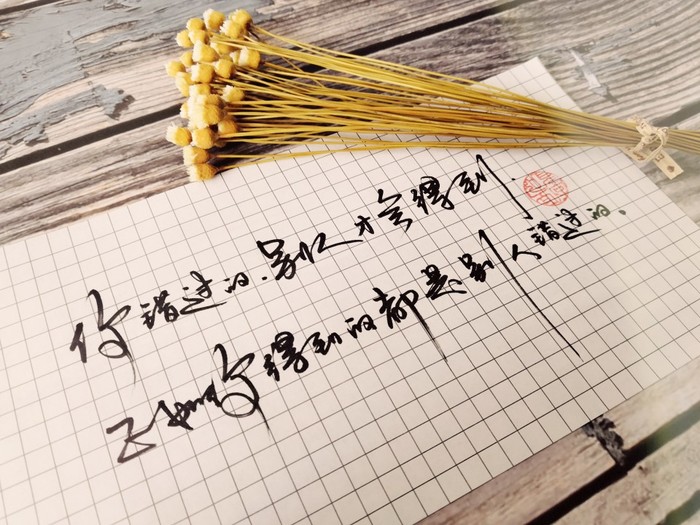 你错过的，别人才会得到，
正如你得到的都是别人错过的。